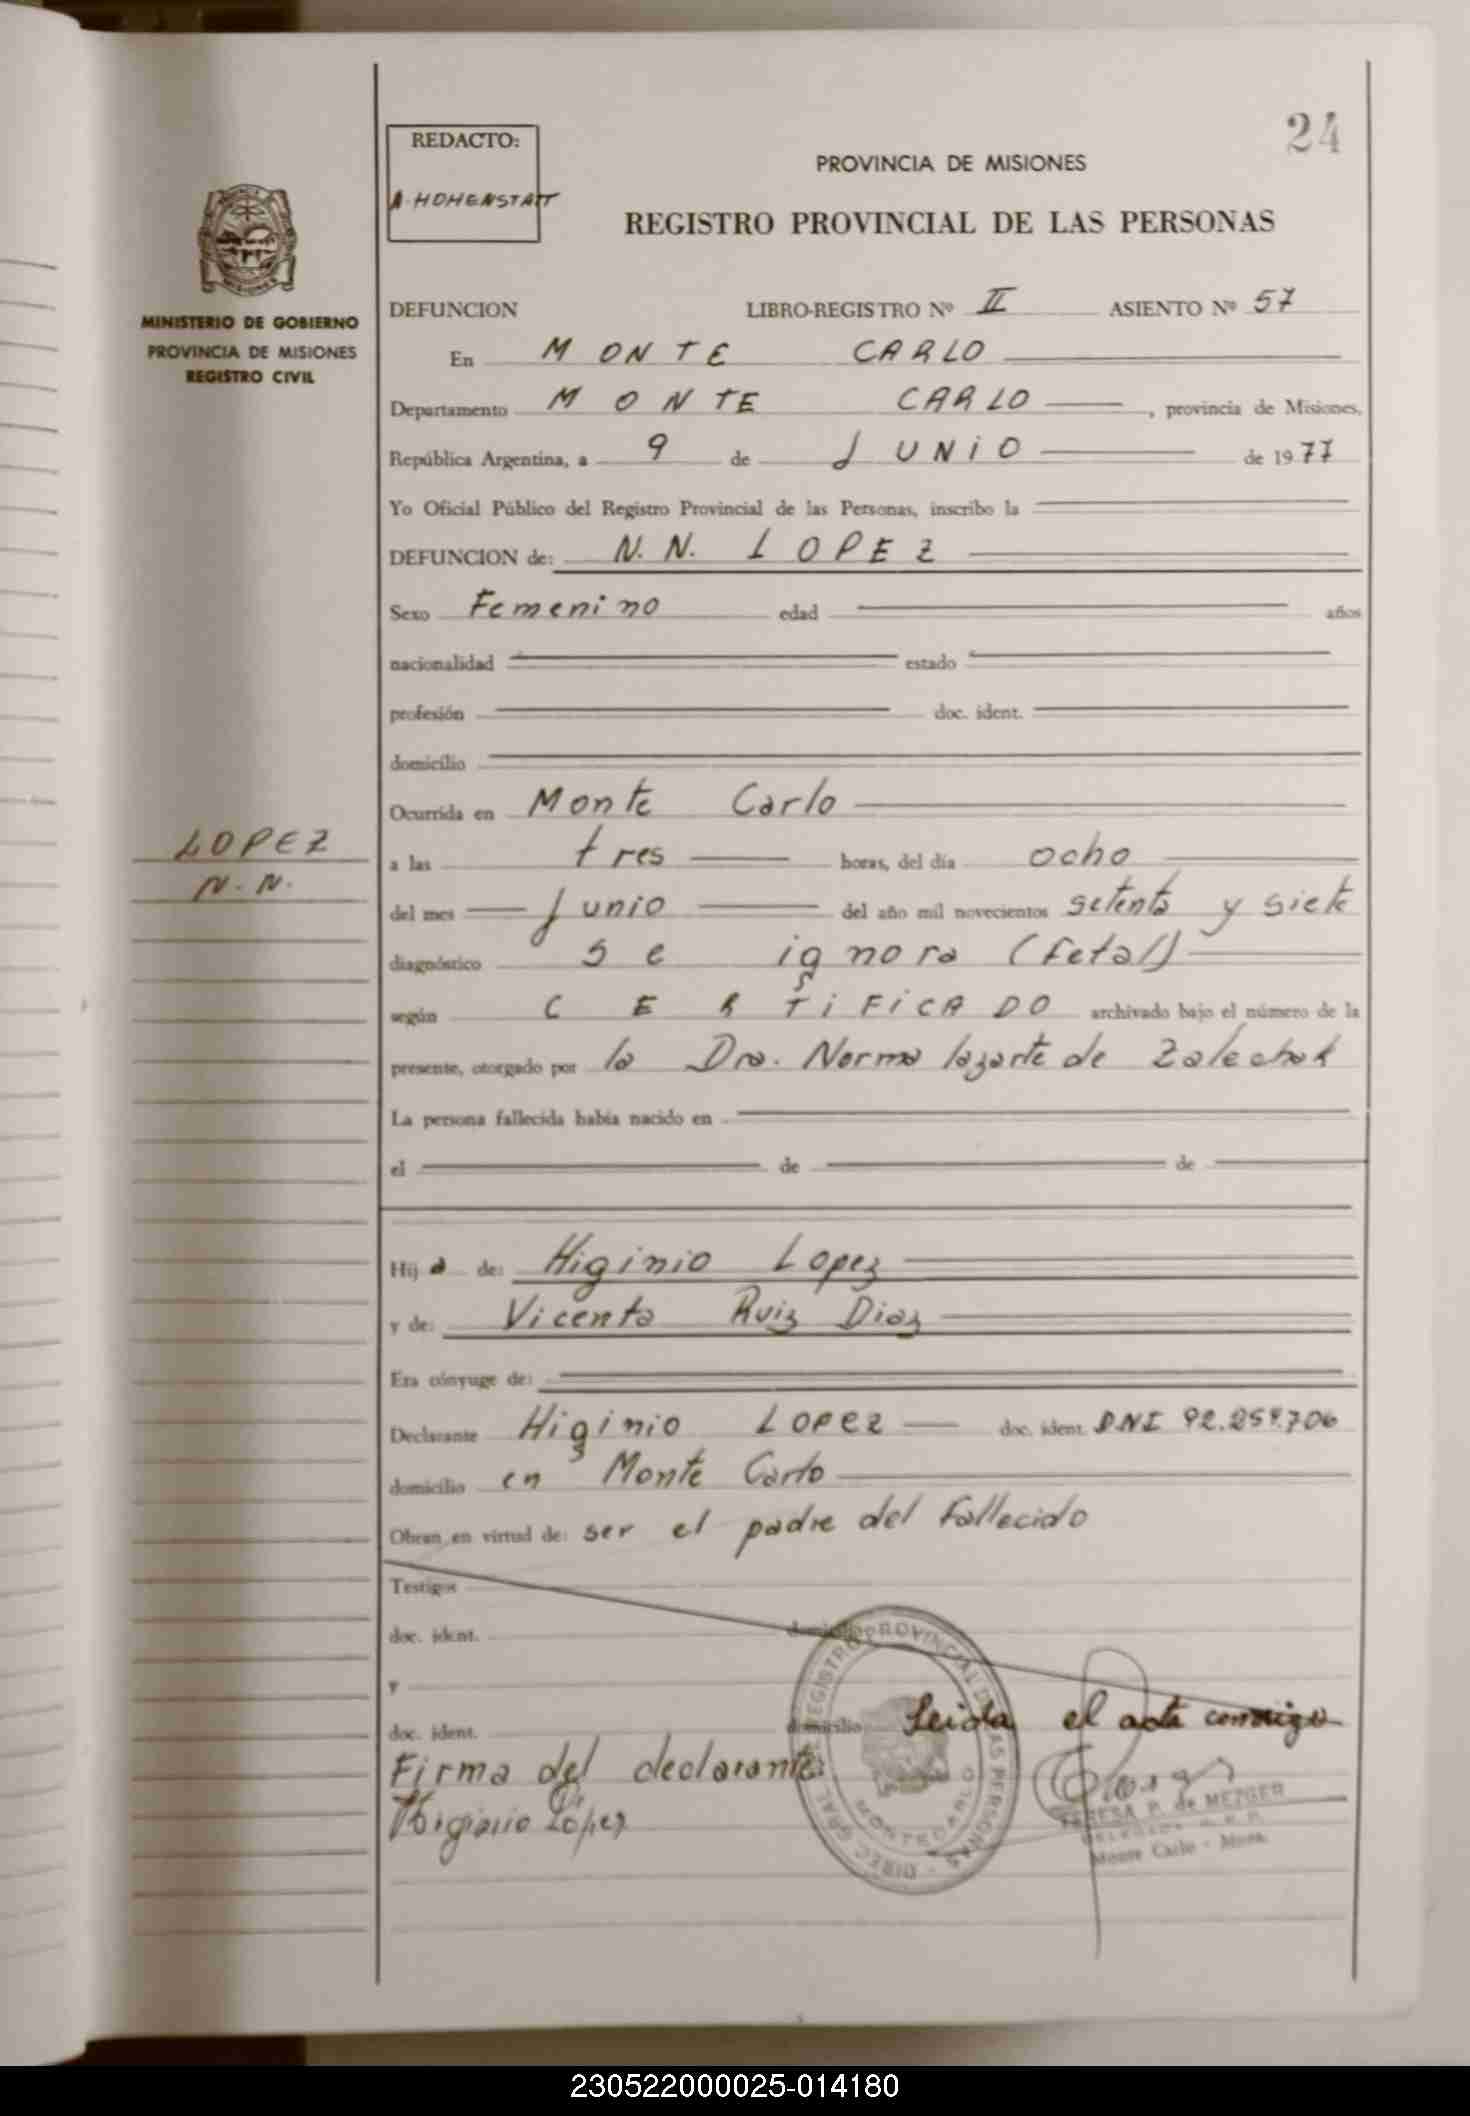 24
REDACTO:
A. HOHENSTATT
PROVINCIA DE MISIONES
REGISTRO PROVINCIAL DE LAS PERSONAS
MINISTERIO DE GOBIERNO
PROVINCIA DE MISIONES
REGISTRO CIVIL
DEFUNCION LIBRO-REGISTRO Nº II ASIENTO Nº 57
En MONTE CARLO
Departamento MONTE CARLO, provincia de Misiones,
República Argentina, a 9 de JUNIO de 1977
Yo Oficial Público del Registro Provincial de las Personas, inscribo la
DEFUNCION de: N.N. LOPEZ
Sexo Femenino edad años
nacionalidad estado
profesión doc. ident.
domicilio
Ocurrida en Monte Carlo
LOPEZ
N.N.
a las tres horas, del día ocho
del mes Junio del año mil novecientos setenta y siete
diagnóstico se ignora (fetal)
según CERTIFICADO archivado bajo el número de la
presente, otorgado por la Dra. Norma lazarte de Zalechak
La persona fallecida había nacido en
el de de
Hija de: Higinio Lopez
y de: Vicenta Ruiz Diaz
Era cónyuge de:
Declarante Higinio LOPEZ doc. ident. DNI 92.257.706
domicilio en Monte Carlo
Obran en virtud de: ser el padre del fallecido
Testigos
doc. ident. domicilio
y
doc. ident. domicilio Leida el acta conmigo
Firma del declarante:
Higinio López
DIREC. GRAL. DE REGISTRO PROVINCIAL DE LAS PERSONAS
MONTECARLO
TERESA P. de MEZGER
DELEGADA R. P. P.
Monte Carlo - Mnes.
230522000025-014180